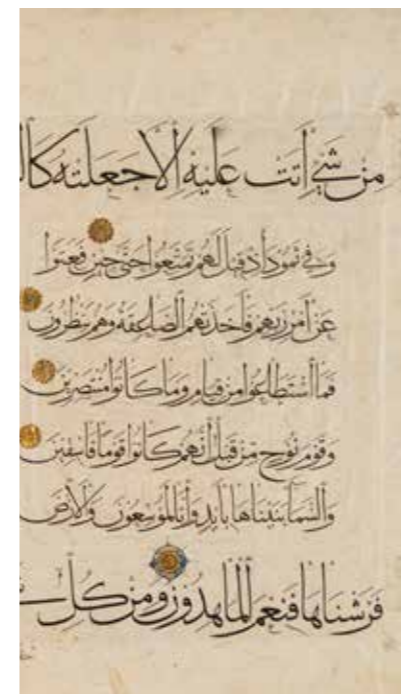 من شيء أتت عليه إلا جعلته كا
وفي ثمود إذ قيل لهم تمتعوا حتى حين فعتوا
عن أمر ربهم فأخذتهم الصاعقة وهم ينظرون
فما استطاعوا من قيام وما كانوا منتصرين
وقوم نوح من قبل إنهم كانوا قوما فاسقين
والسماء بنيناها بأيد وإنا لموسعون والأرض
فرشناها فنعم الماهدون ومن كل